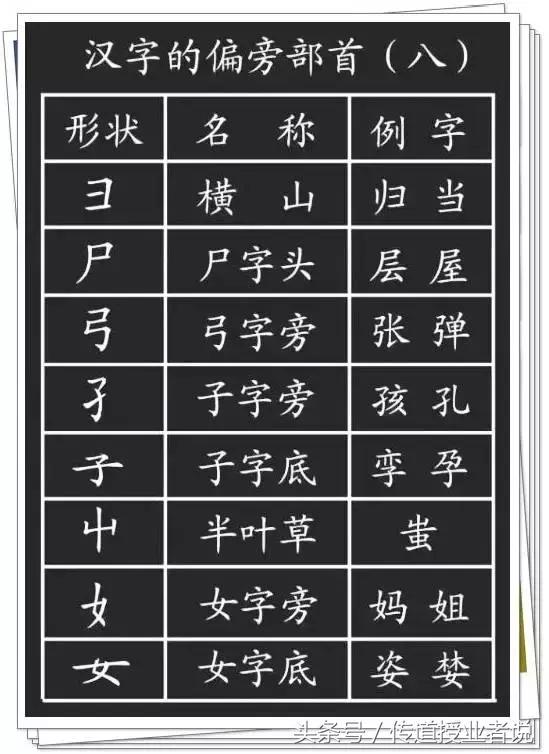 汉字的偏旁部首（八）
形状 名 称 例 字
彐 横 山 归 当
尸 尸字头 层 屋
弓 弓字旁 张 弹
孑 子字旁 孩 孔
子 子字底 孪 孕
屮 半叶草 蚩
女 女字旁 妈 姐
女 女字底 姿 婪
头条号／传道授业者说